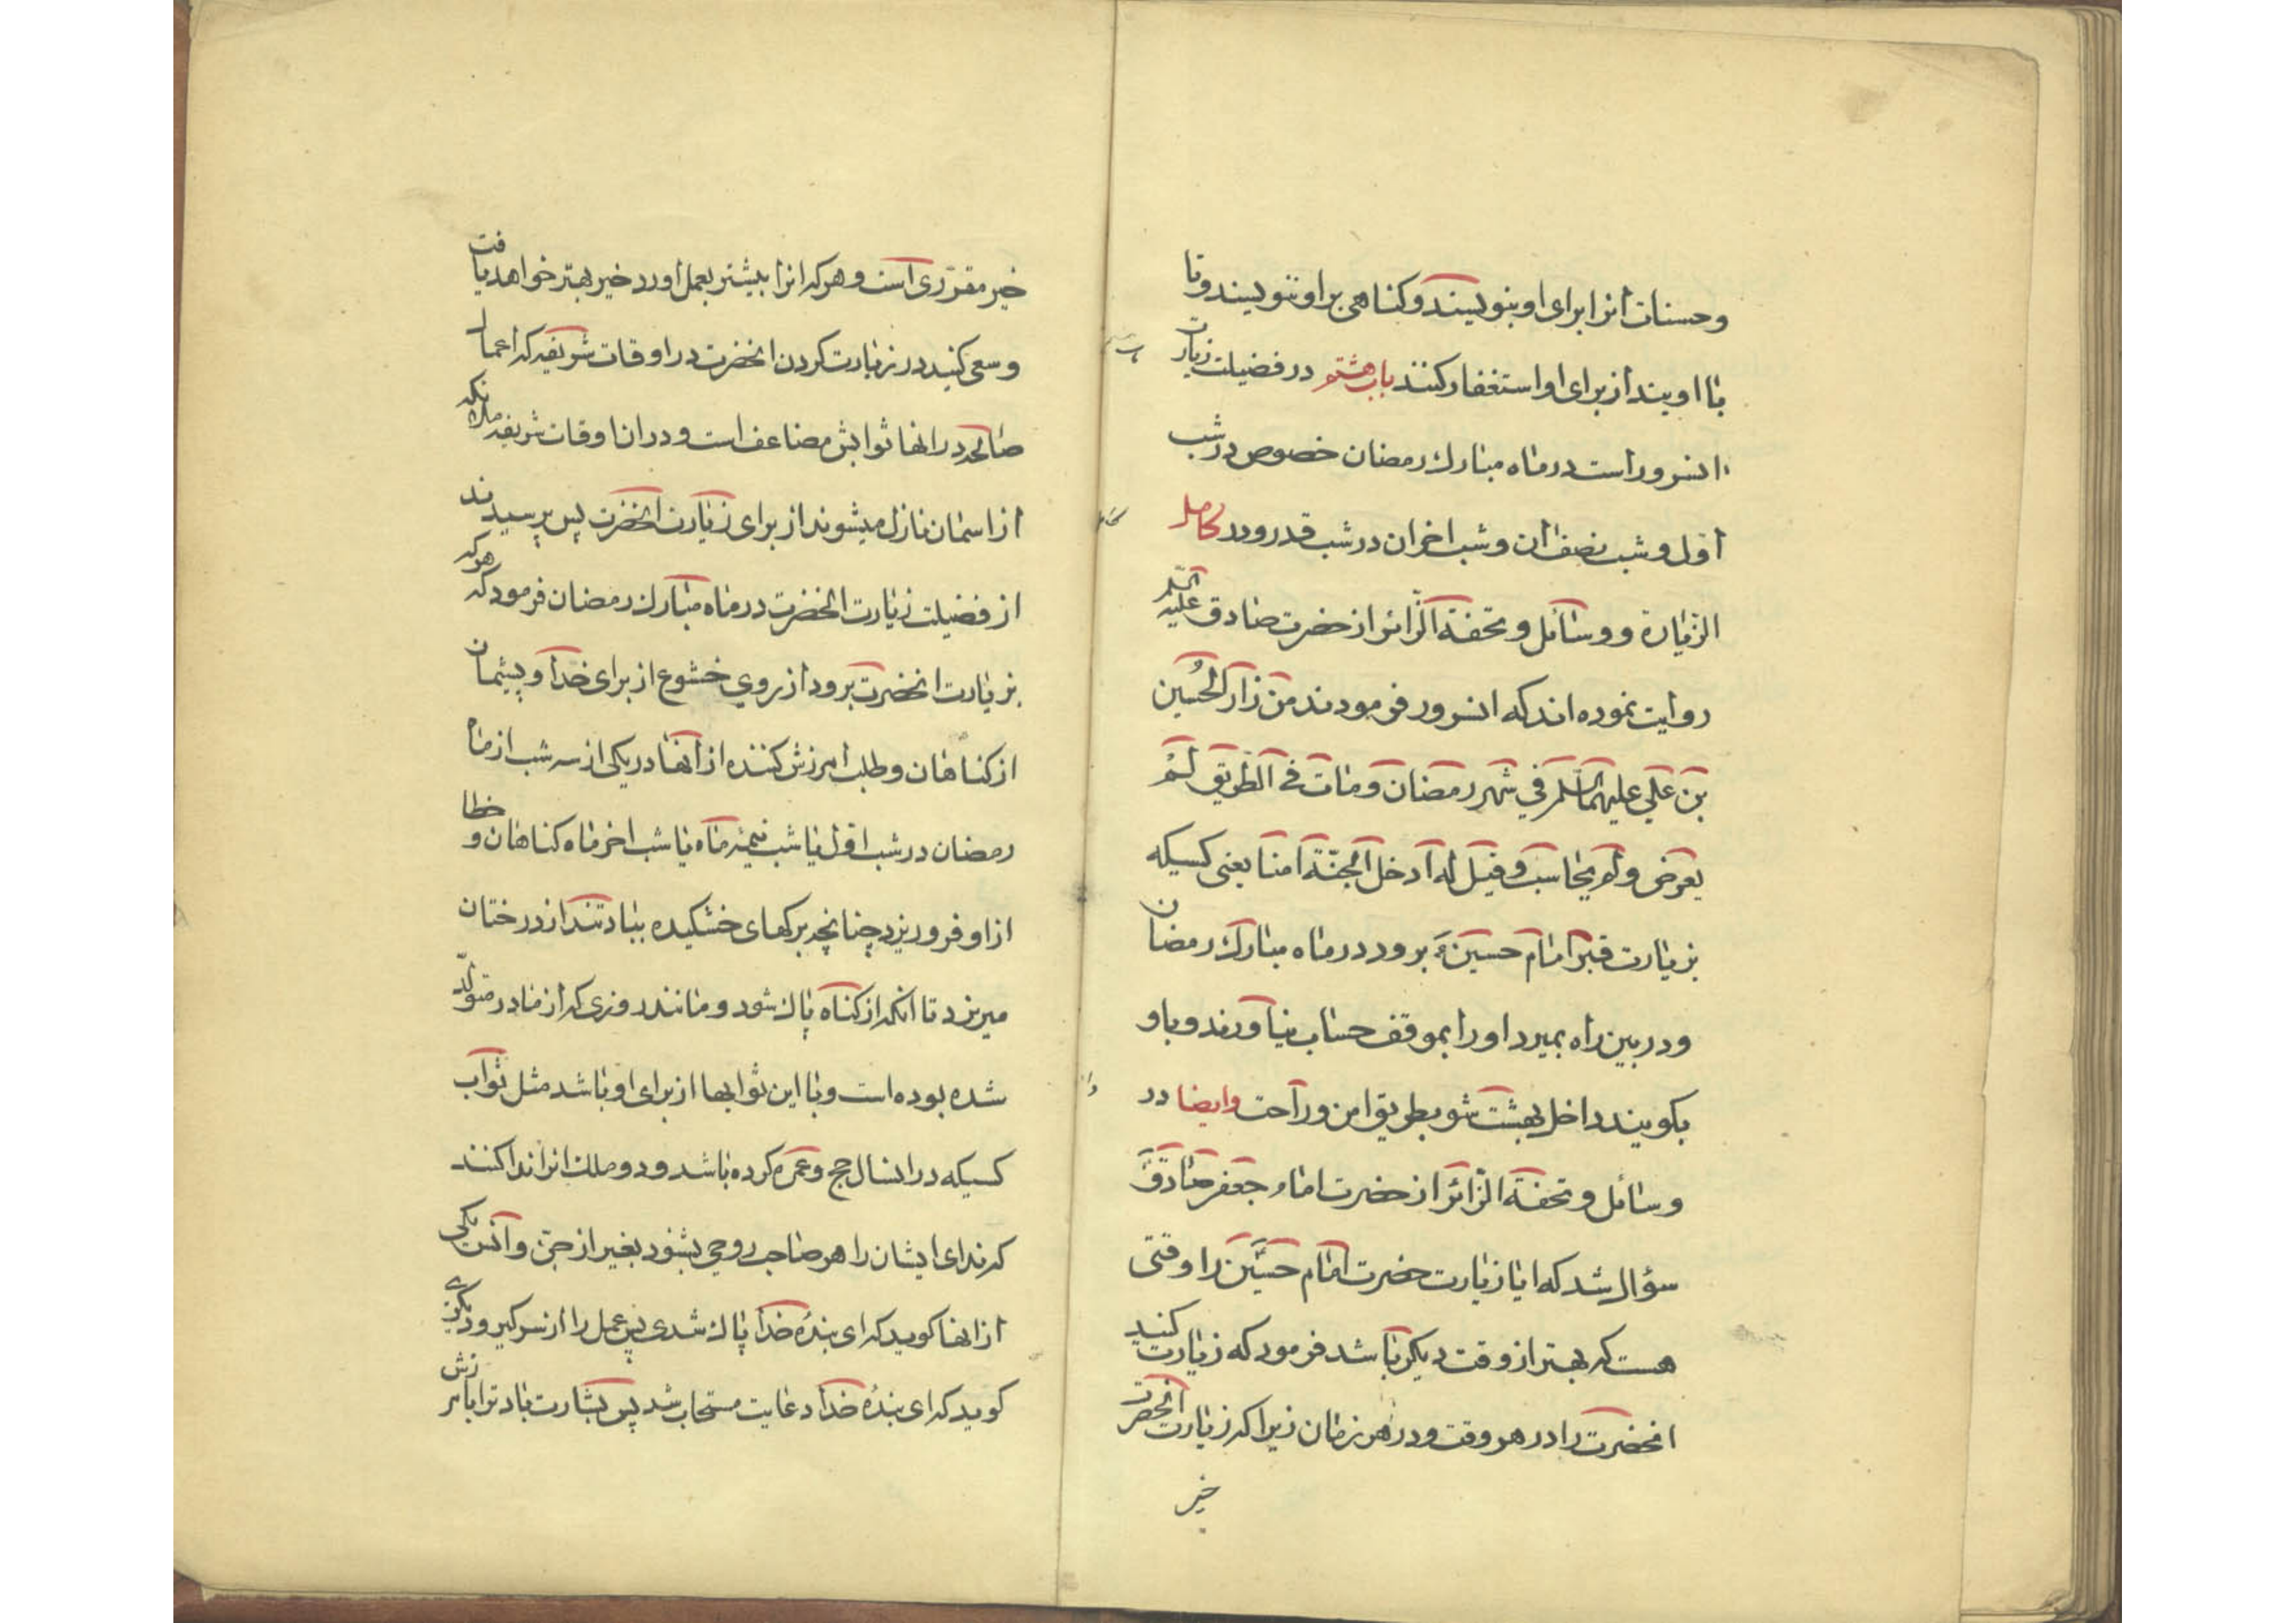 وحسنات انرا برای او بنویسند و کناهی بر او ننویسند و تا
با او یند از برای او استغفار کنند باب هشتم در فضیلت زیارت
انسرور است در ماه مبارک رمضان خصوص در شب
اول و شب نصف ان و شب اخر ان در شب قدر و در کامل
الزیارة و وسائل و تحفة الزائر از حضرت صادق علیه السلم
روایت نموده اند که انسرور فرمودند من زار الحُسین
بن علی علیهما السلم فی شهر رمضان و مات فی الطریق لم
یعرض و لم یحاسب و قیل له ادخل الجنّة امنا یعنی کسیکه
بزیارت قبر امام حسینؑ برود در ماه مبارک رمضان
و در بین راه بمیرد او را بموقف حساب نیاورند و باو
بکویند داخل بهشت شو بطریق امن و راحت وایضا در
وسائل و تحفة الزائر از حضرت امام جعفر صادقؑ
سؤال شد که ایا زیارت حضرت امام حسینؑ را وقتی
هست که بهتر از وقت دیکر باشد فرمود که زیارت کنید
انحضرت را در هر وقت و در هر زمان زیرا که زیارت انحضرت
خیر
خیر مقرّری است و هر که انرا بیشتر بعمل اورد خیر بهتر خواهد یافت
و سعی کنید در زیارت کردن انحضرت در اوقات شریفه که اعمال
صالحه در انها ثوابش مضاعف است و در ان اوقات شریفه ملائکه
از اسمان نازل میشوند از برای زیارت انحضرت پس پرسیدند
از فضیلت زیارت انحضرت در ماه مبارک رمضان فرمود که هر که
بزیارت انحضرت برود از روی خشوع از برای خدا و پشیمان
از کناهان و طلب امرزش کننده از انها در یکی از سه شب از ماه
رمضان در شب اول یا شب نیمۀ ماه یا شب اخر ماه کناهان و خطا
از او فرو ریزد چنانچه برکهای خشکیده بباد تند از درختان
میریزد تا انکه از کناه پاک شود و مانند روزی که از مادر متولّد
شده بوده است و با این ثوابها از برای او باشد مثل ثواب
کسیکه در انسال حج و عمره کرده باشد و دو ملک انرا ندا کنند
که ندای ایشان را هر صاحب روحی بشنود بغیر از جن و انس یکی
از انها کوید که ای بندۀ خدا پاک شدی پس عمل را از سر کیر و دیکری
کوید که ای بندۀ خدا دعایت مستجاب شد پس بشارت باد ترا بامرزش